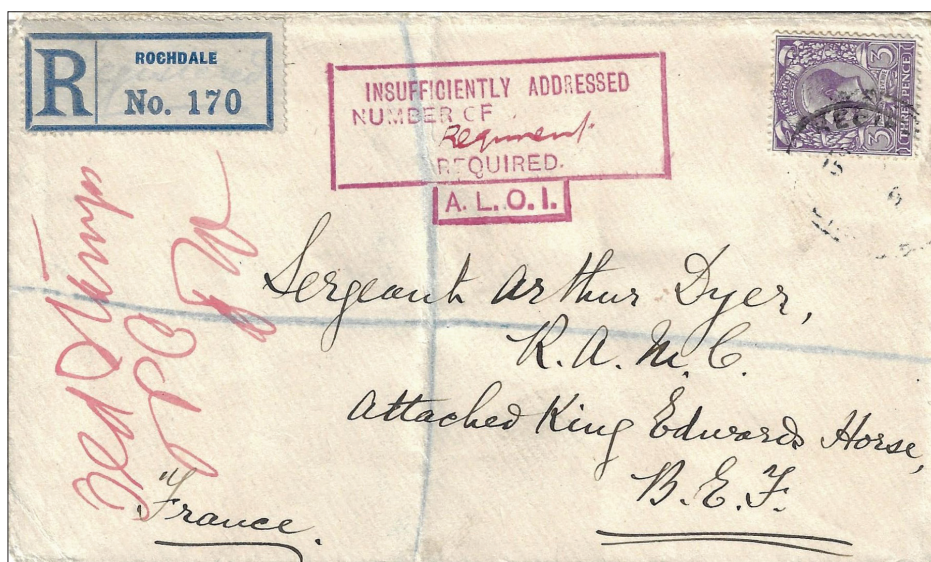 R
ROCHDALE
No. 170
INSUFFICIENTLY ADDRESSED
NUMBER OF
Regiment
REQUIRED.
A. L. O. I.
THREE PENCE
3 3
Sergeant Arthur Dyer,
R. A. M. C.
Attached King Edwards Horse,
B. E. F.
"France.